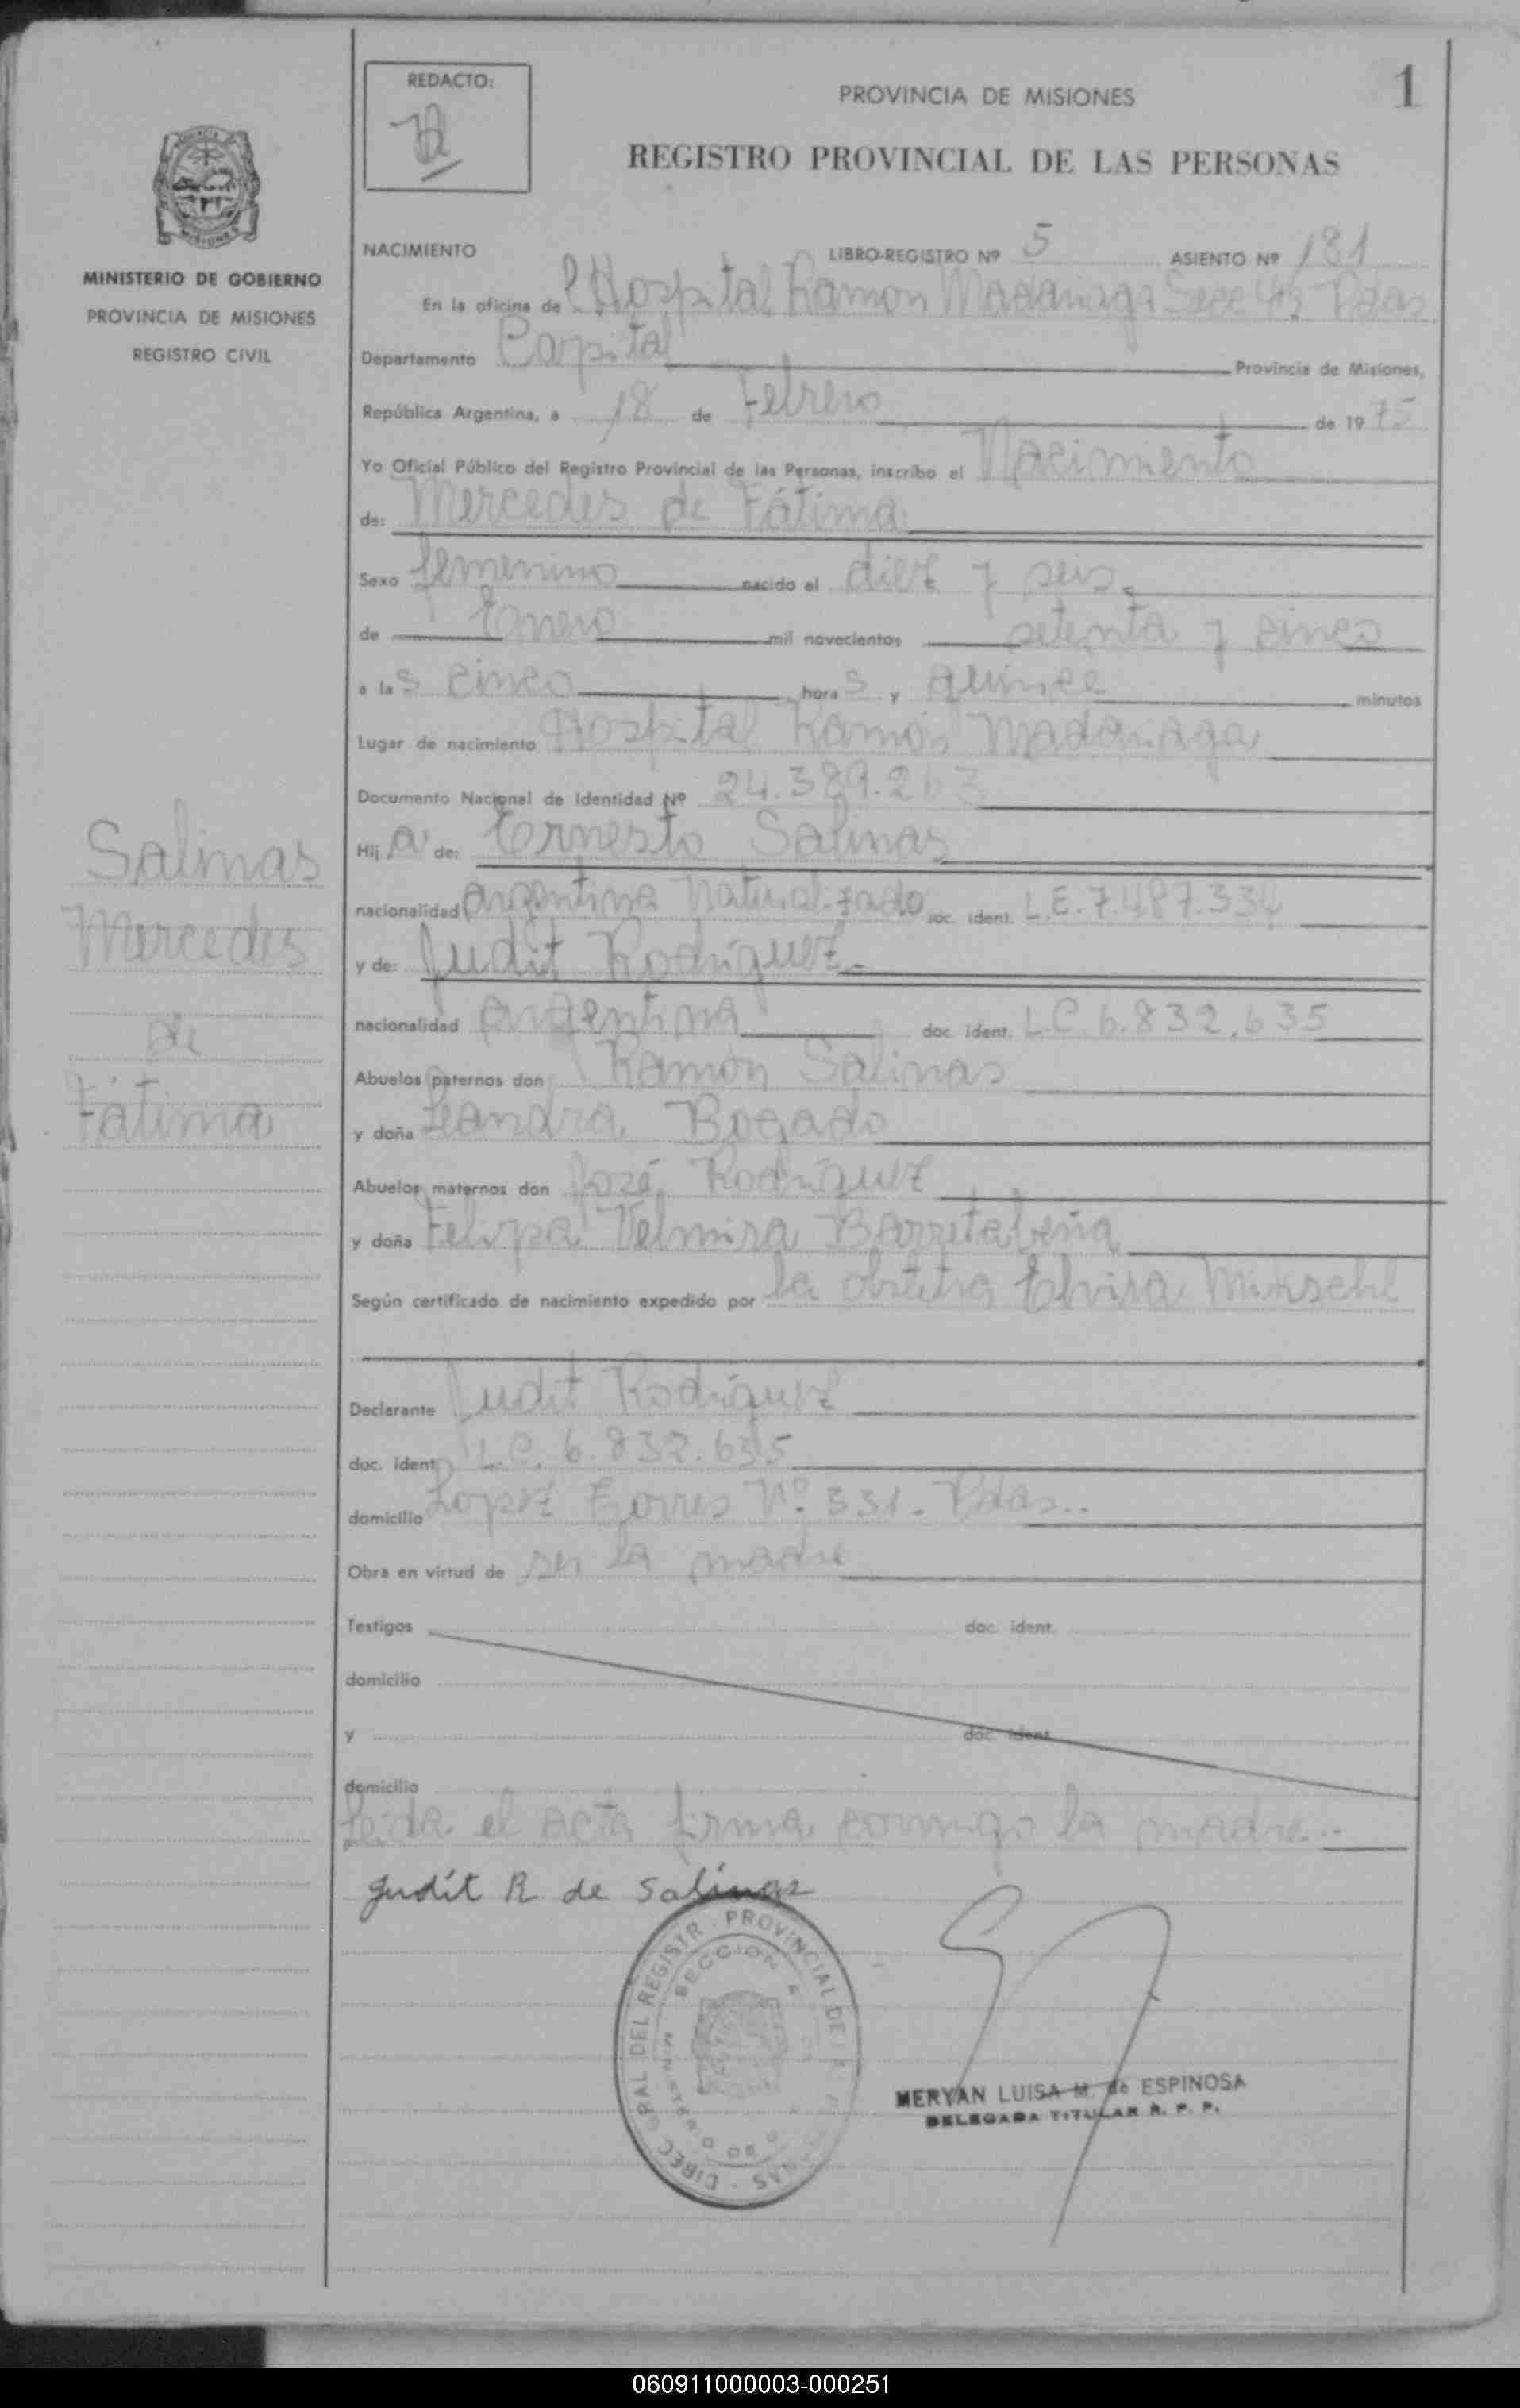 REDACTO:
PROVINCIA DE MISIONES
1
REGISTRO PROVINCIAL DE LAS PERSONAS
MISIONES
MINISTERIO DE GOBIERNO
PROVINCIA DE MISIONES
REGISTRO CIVIL
NACIMIENTO LIBRO-REGISTRO Nº 5 ASIENTO Nº 181
En la oficina de Hospital Ramon Madariaga Secc 4ª Pdas
Departamento Capital Provincia de Misiones,
República Argentina, a 18 de Febrero de 1975
Yo Oficial Público del Registro Provincial de las Personas, inscribo el Nacimiento
de: Mercedes de Fátima
Sexo femenino nacido el diez y seis
de Enero mil novecientos setenta y cinco
a las cinco horas y quince minutos
Lugar de nacimiento Hospital Ramón Madariaga
Documento Nacional de Identidad Nº 24.389.263
Hija de: Ernesto Salinas
nacionalidad Argentina Naturalizado doc. ident. L.E. 7.487.334
y de: Judit Rodriguez
nacionalidad argentina doc. ident. L.C. 6.832.635
Abuelos paternos don Ramón Salinas
y doña Leandra Bogado
Abuelos maternos don José Rodríguez
y doña Felipa Velmira
Según certificado de nacimiento expedido por la obstetra Elvira
Declarante Judit Rodríguez
doc. ident. L.C. 6.832.635
domicilio Lopez Torres Nº 331 - Pdas..
Obra en virtud de ser la madre
Testigos doc. ident.
domicilio
y doc. ident.
domicilio
Leída el acta firma conmigo la madre..
Judit R de Salinas
Salinas
Mercedes
de
Fátima
MERYAN LUISA M. de ESPINOSA
DELEGADA TITULAR R. P. P.
060911000003-000251